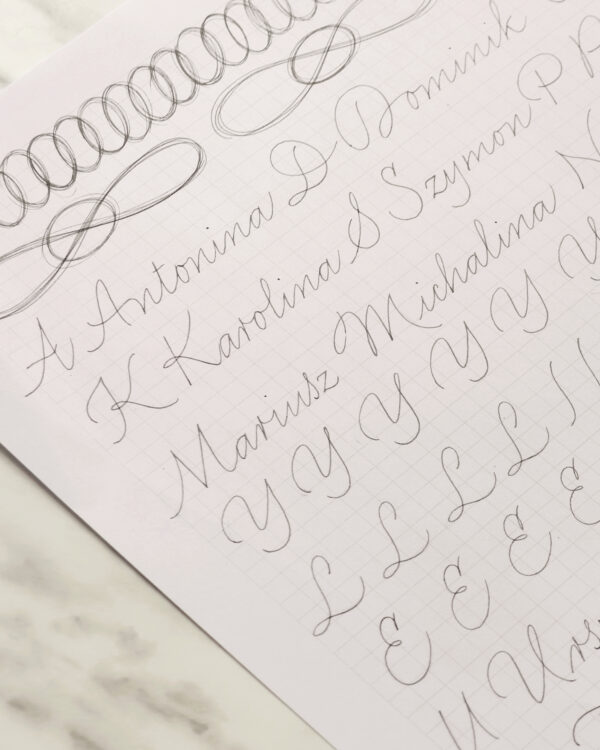 A Antonina D Dominik
K Karolina S Szymon P
Mariusz Michalina N
Y Y Y Y Y Y
L L L L
E E E E
U